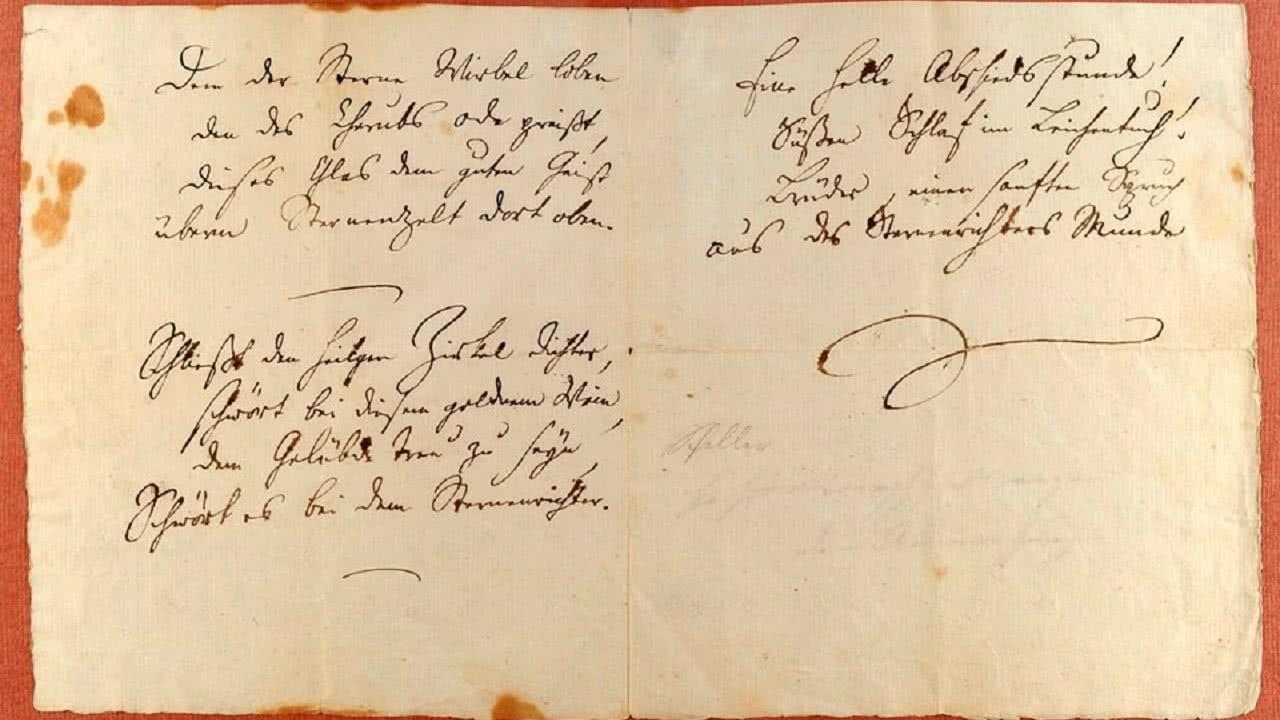 Dem der Sterne Wirbel loben
den des Cherubs Ode preißt,
dieses Glas dem guten Geist
übern Sternenzelt dort oben.
Schließt den heilgen Zirkel dichter,
schwört bei diesem goldnem Wein,
dem Gelübde treu zu seyn,
Schwört es bei dem Sternenrichter.
Eine helle Abschiedsstunde!
Süßen Schlaf im Leichentuch!
Brüder, einen sanften Spruch
aus des Sternenrichters Munde
Schiller